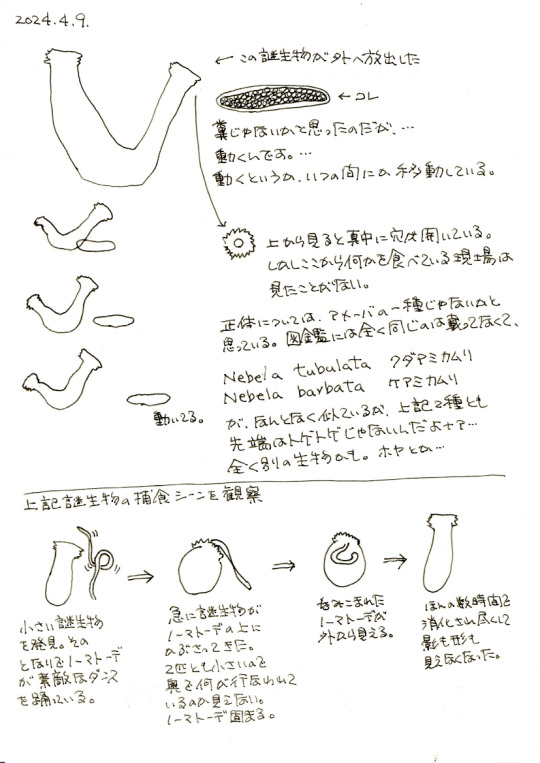 2024.4.9.
← この謎生物が外へ放出した
← コレ
糞じゃないかと思ったのだが、…
動くんです。…
動くというか、いつの間にか移動している。
上から見ると真中に穴が開いている。
しかしここから何かを食べている現場は
見たことがない。
正体については、アメーバの一種じゃないかと
思っている。図鑑には全く同じのは載ってなくて、
Nebela tubulata クダアミカムリ
Nebela barbata ケアミカムリ
が、なんとなく似ているが、上記2種とも
先端はトゲトゲじゃないんだよナア…
全く別の生物かも。ホヤとか…
動いてる。
上記謎生物の捕食シーンを観察
小さい謎生物
を発見。その
となりでノーマトーデ
が素敵なダンス
を踊っている。
急に謎生物が
ノーマトーデの上に
かぶさってきた。
2匹とも小さいので
奥で何が行なわれて
いるのか見えない。
ノーマトーデ固まる。
のみこまれた
ノーマトーデが
外から見える。
ほんの数時間で
消化され尽くして
影も形も
見えなくなった。